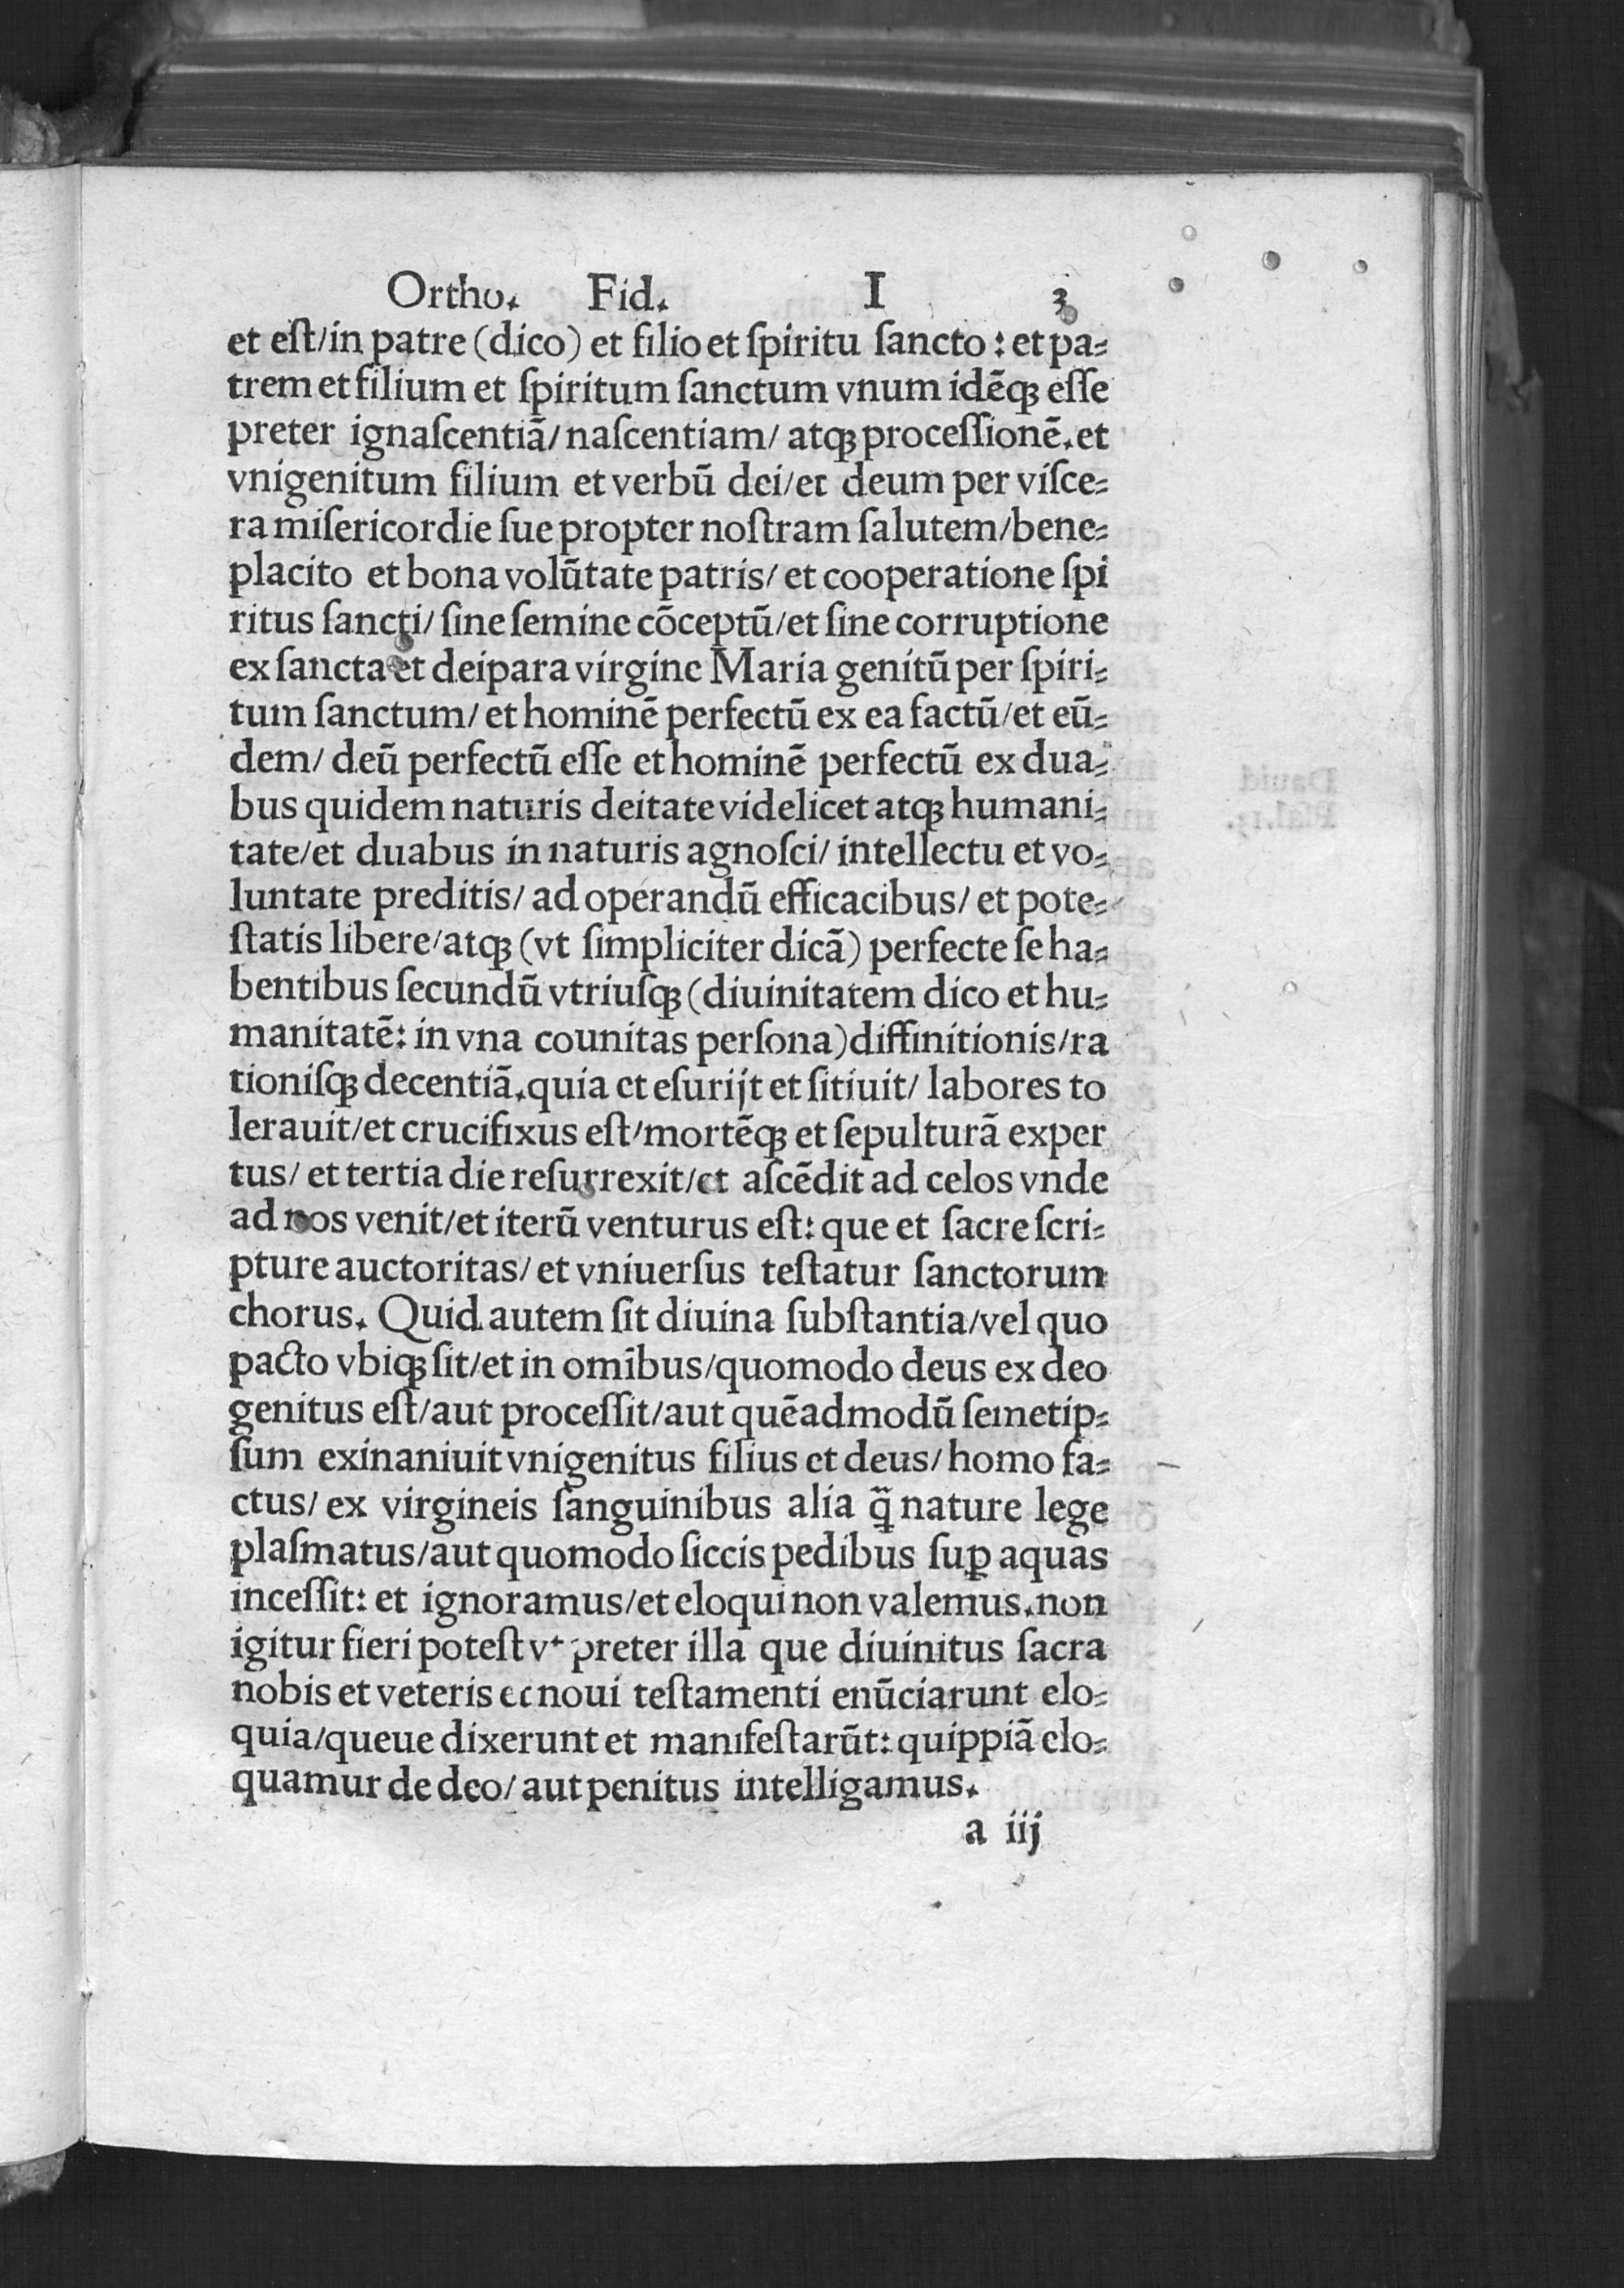 Ortho. Fid. I 3
et eſt/in patre (dico) et filio et ſpiritu ſancto: et pa⸗
trem et filium et ſpiritum ſanctum vnum idēqꝫ eſſe
preter ignaſcentiā/ naſcentiam/ atqꝫ proceſſionē. et
vnigenitum filium et verbū dei/et deum per viſce⸗
ra miſericordie ſue propter noſtram ſalutem/bene⸗
placito et bona volūtate patris/ et cooperatione ſpi
ritus ſancti/ ſine ſemine cōceptū/et ſine corruptione
ex ſancta et deipara virgine Maria genitū per ſpiri⸗
tum ſanctum/ et hominē perfectū ex ea factū/et eū⸗
dem/ deū perfectū eſſe et hominē perfectū ex dua⸗
bus quidem naturis deitate videlicet atqꝫ humani⸗
tate/et duabus in naturis agnoſci/ intellectu et vo⸗
luntate preditis/ ad operandū efficacibus/ et pote⸗
ſtatis libere/atqꝫ (vt ſimpliciter dicā) perfecte ſe ha⸗
bentibus ſecundū vtriuſqꝫ (diuinitatem dico et hu⸗
manitatē: in vna counitas perſona) diffinitionis/ra
tioniſqꝫ decentiā. quia et eſurijt et ſitiuit/ labores to
lerauit/et crucifixus eſt/mortēqꝫ et ſepulturā exper
tus/ et tertia die reſurrexit/et aſcēdit ad celos vnde
ad nos venit/et iterū venturus eſt: que et ſacre ſcri⸗
pture auctoritas/ et vniuerſus teſtatur ſanctorum
chorus. Quid autem ſit diuina ſubſtantia/vel quo
pacto vbiqꝫ ſit/et in omībus/quomodo deus ex deo
genitus eſt/aut proceſſit/aut quēadmodū ſemetip⸗
ſum exinaniuit vnigenitus filius et deus/ homo fa⸗
ctus/ ex virgineis ſanguinibus alia q̄ nature lege
plaſmatus/aut quomodo ſiccis pedibus ſuꝑ aquas
inceſſit: et ignoramus/et eloqui non valemus. non
igitur fieri poteſt vt preter illa que diuinitus ſacra
nobis et veteris et noui teſtamenti enūciarunt elo⸗
quia/queue dixerunt et manifeſtarūt: quippiā elo⸗
quamur de deo/ aut penitus intelligamus.
a iij